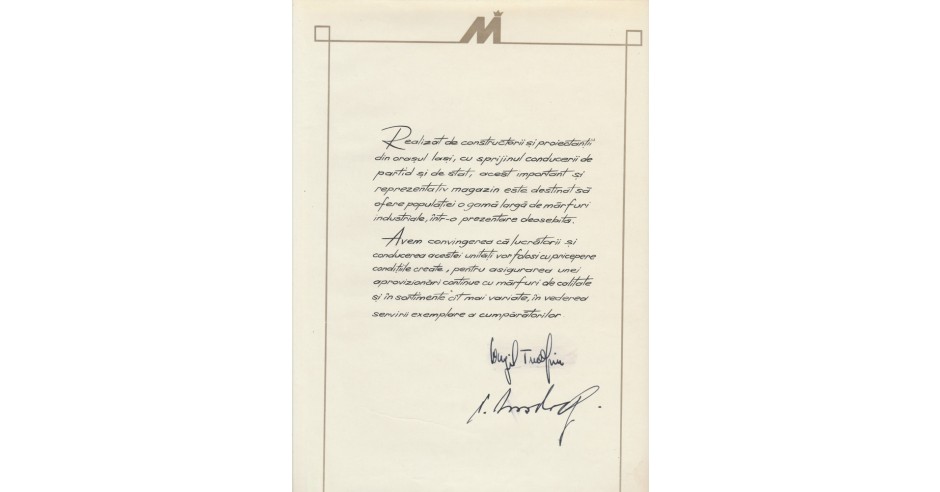 M
Realizat de constructorii și proiectanții
din orașul Iași, cu sprijinul conducerii de
partid și de stat, acest important și
reprezentativ magazin este destinat să
ofere populației o gamă largă de mărfuri
industriale, într-o prezentare deosebită.
Avem convingerea că lucrătorii și
conducerea acestei unități vor folosi cu pricepere
condițiile create, pentru asigurarea unei
aprovizionări continue cu mărfuri de calitate
și în sortimente cît mai variate, în vederea
servirii exemplare a cumpărătorilor